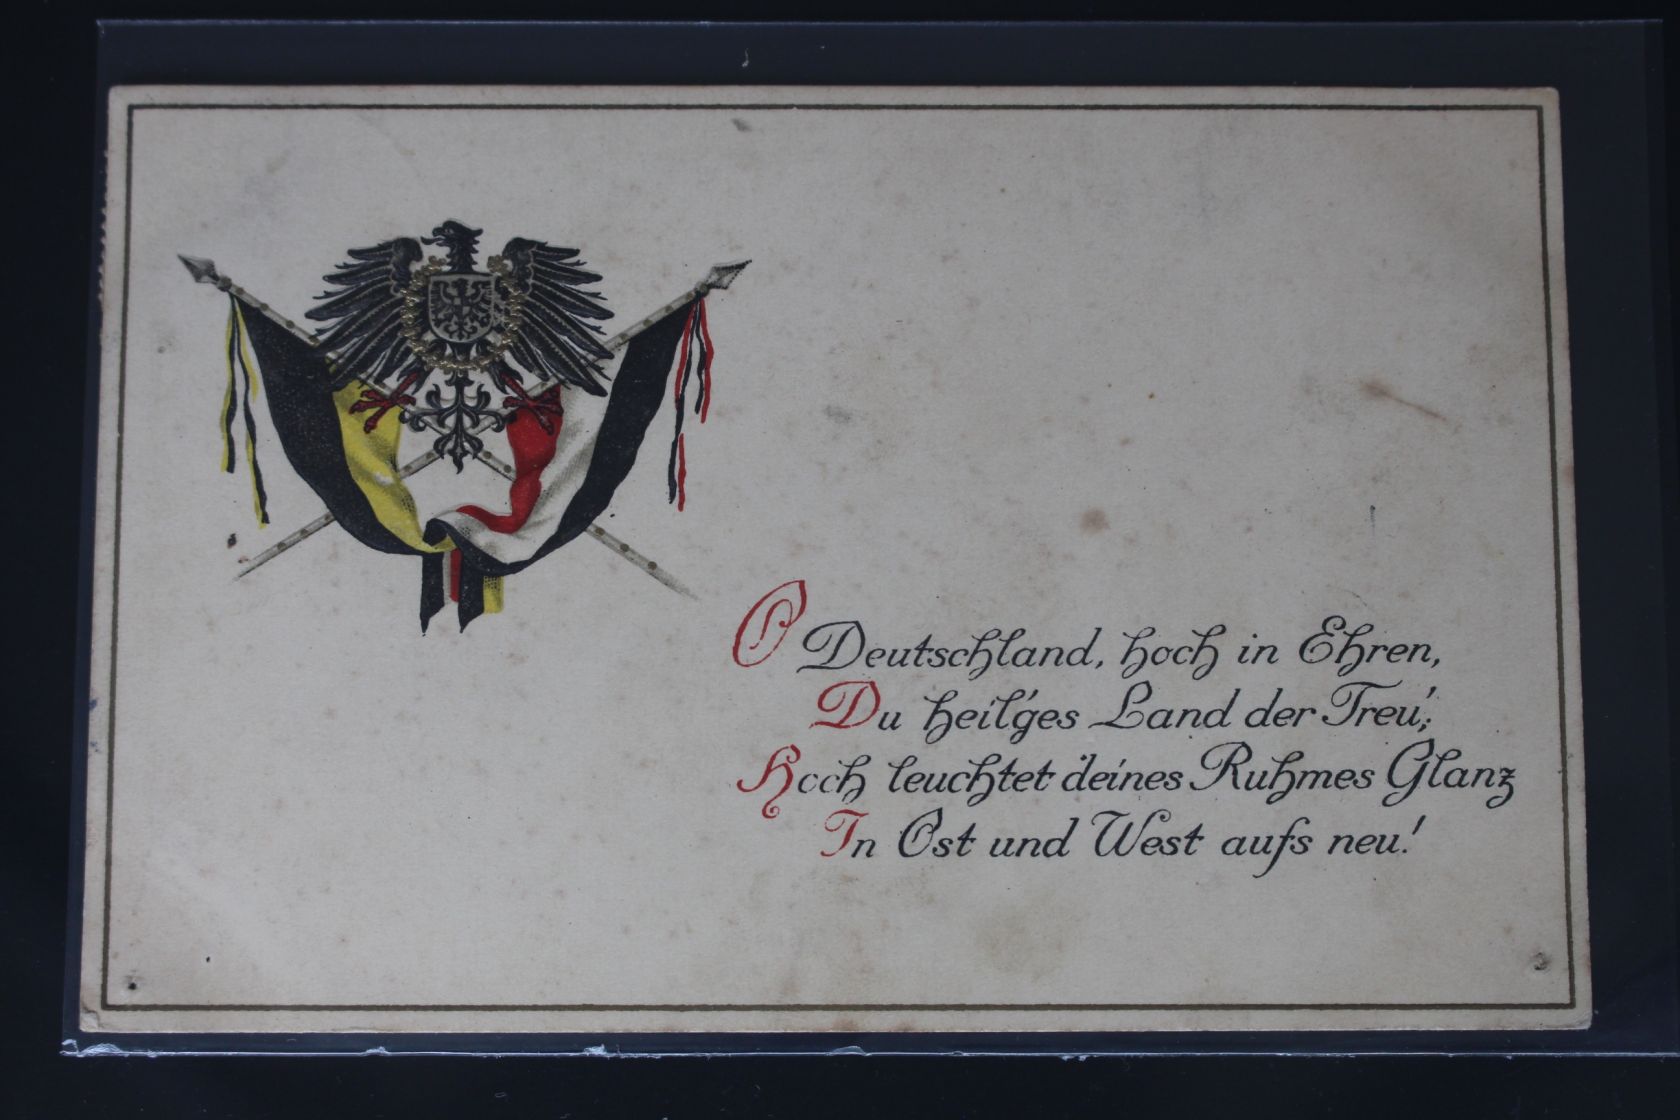 O Deutschland, hoch in Ehren,
Du heil'ges Land der Treu',
Hoch leuchtet deines Ruhmes Glanz
In Ost und West aufs neu!